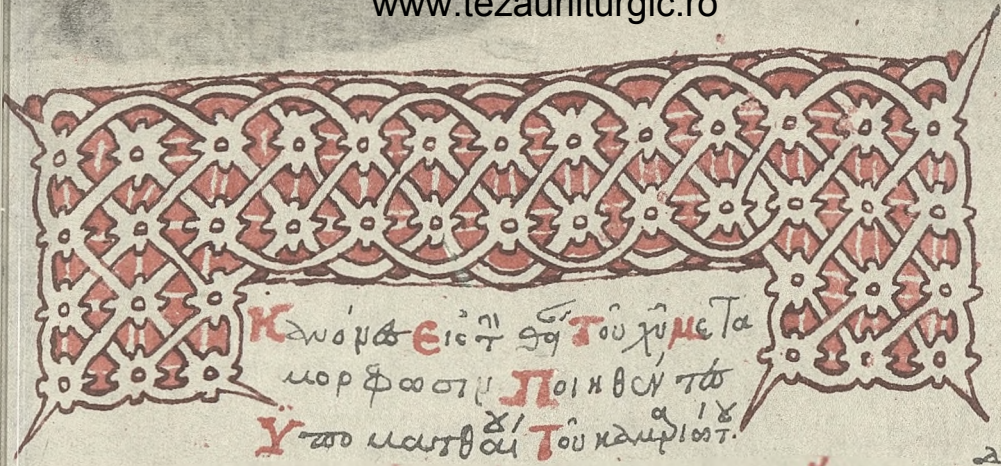 www.tezaurliturgic.ro
Κανόνες εἰς τὴν θείαν Τοῦ χῦ μετα
μόρφωσιν Ποιηθέν τα
Ὑπὸ ματθαίου Τοῦ καμαριώτου.